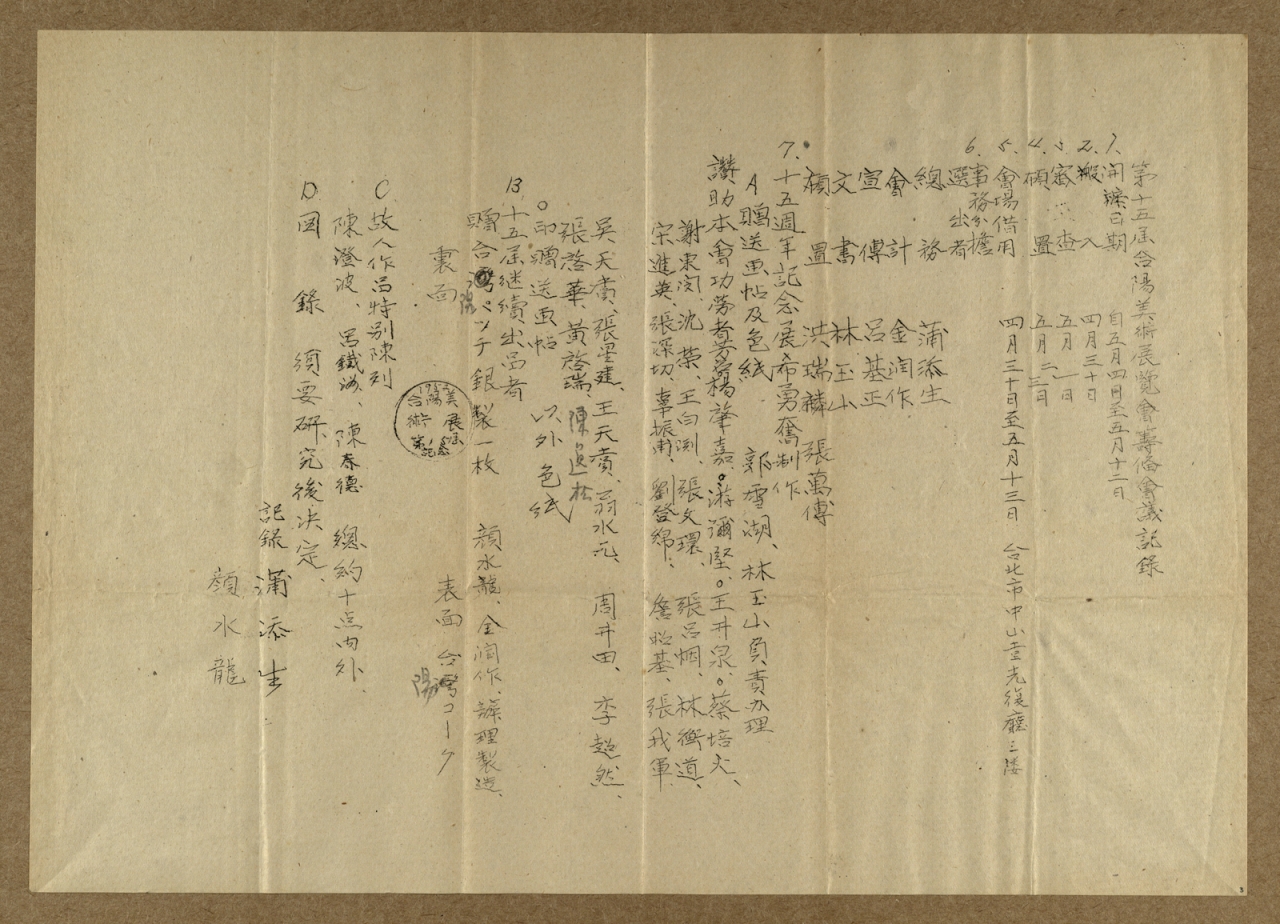 第十五屆台陽美術展覽會籌備會議記錄
1. 開辦日期 自五月四日至五月十二日
2. 搬入 四月三十日
3. 審查 五月一日
4. 碩置 五月二、三日
5. 會場借用 四月三十日至五月十三日 台北市中山堂光復廳三楼
6. 事務分擔
選出者
總務 蒲添生
會計 金潤作
宣傳 呂基正
文書 林玉山
碩置 洪瑞麟 張萬傳
7. 十五週年記念展希勇奮制作
A 贈送画帖及色紙 郭雪湖、林玉山負責办理
讚助本會功勞者芳 楊肇嘉。游彌堅。王井泉。蔡培火、
謝東閔、沈榮、王白渕、張文環、張呂烟、林衡道、
宋進英、張深切、辜振甫、劉登綿、詹昭基、張我軍、
吳天賞、張星建、王天賞、翁水元、周井田、李超然、
張啓華、黃啓瑞、陳逸松
○印贈送画帖 以外色紙
B. 十五屆继續出品者
贈台陽バッチ銀製一枚 顏水龍、金润作、辦理製造、
裏面 表面 台陽マーク
台陽美術展 記念
C 故人作品特別陳列
陳澄波、呂鐵洲、陳春德 總約十点内外、
D 図錄 須要研究後决定、
記錄 蒲添生
顏水龍